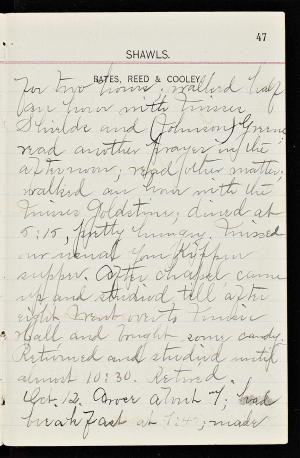 47
SHAWLS.
BATES, REED & COOLEY.
For two hours; walked half
an hour with Misses
Shields and (Johnson) Greene
read another prayer in the
afternoon; read other matter;
walked an hour with the
Misses Goldstine; dined at
5:15, pretty hungry. Missed
our usual Yom Kippur
supper. After chapel came
up and studied till after
eight. Went over to Music
Hall and bought some candy.
Returned and studied until
almost 10:30. Retired
Oct. 12. Arose about 7; had
breakfast at 7:45; made